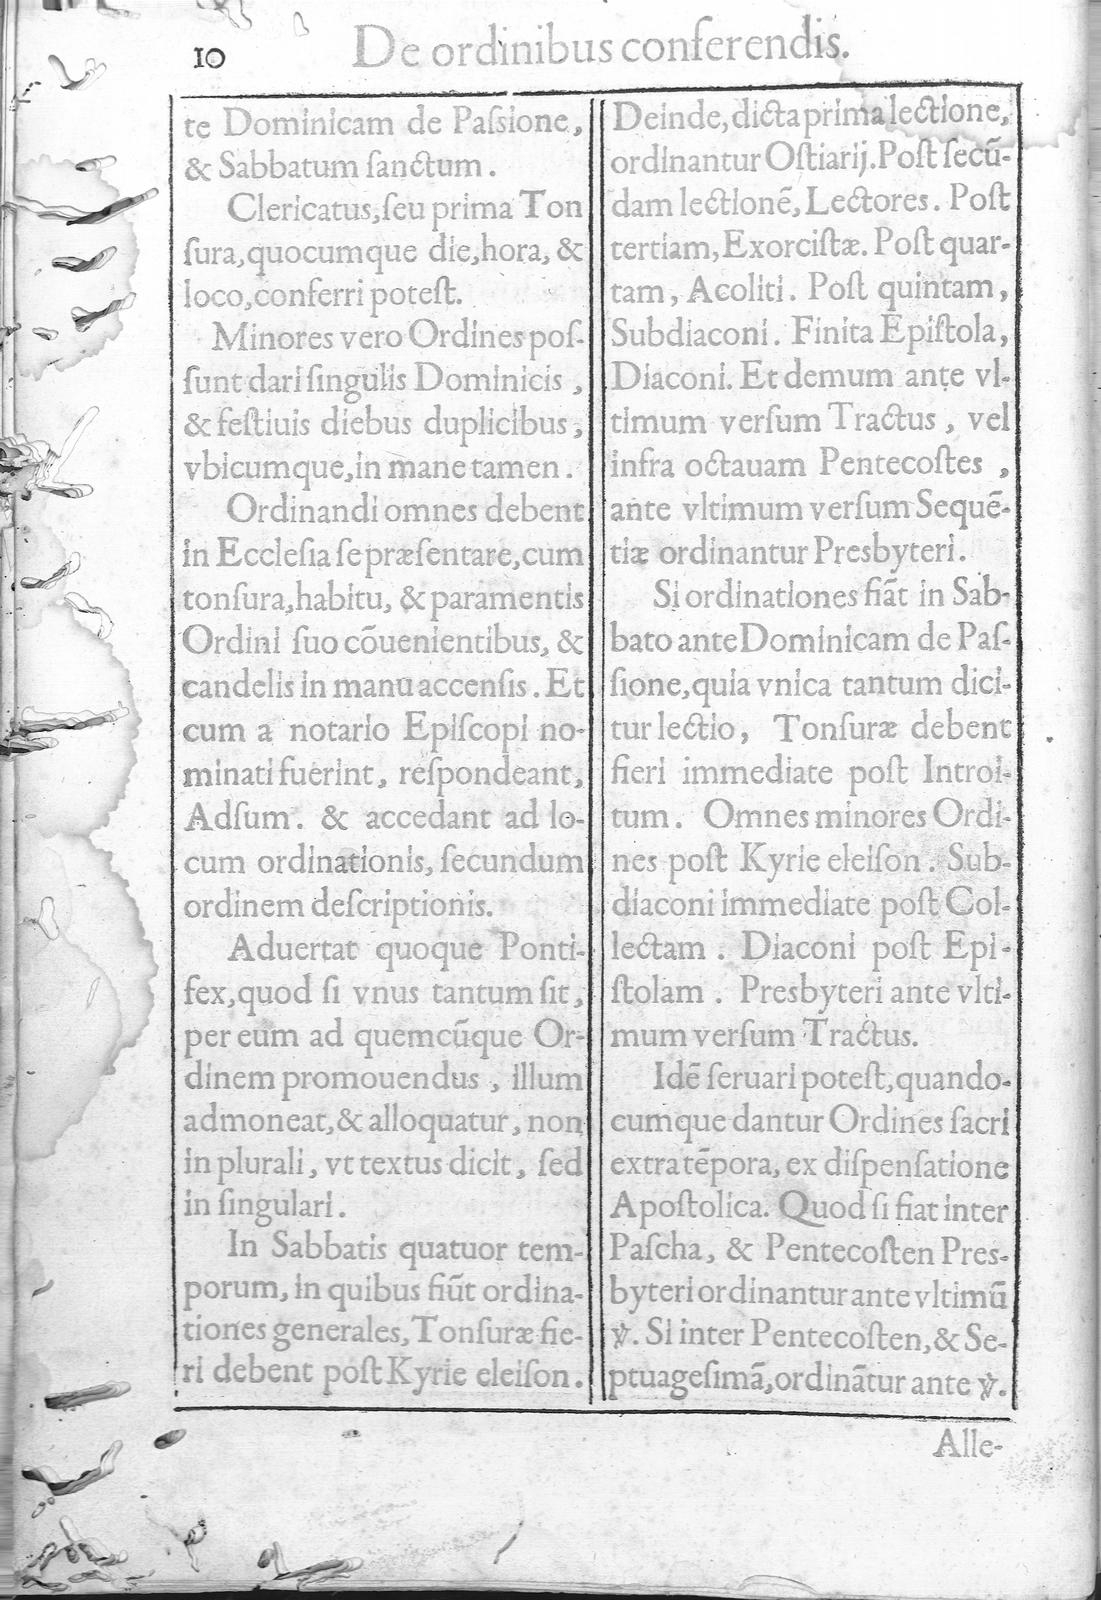 10
De ordinibus conferendis.
te Dominicam de Paſsione,
& Sabbatum ſanctum.
Clericatus, ſeu prima Ton
ſura, quocumque die, hora, &
loco, conferri poteſt.
Minores vero Ordines poſ-
ſunt dari ſingulis Dominicis,
& feſtiuis diebus duplicibus,
vbicumque, in mane tamen.
Ordinandi omnes debent
in Eccleſia ſe præſentare, cum
tonſura, habitu, & paramentis
Ordini ſuo cōuenientibus, &
candelis in manu accenſis. Et
cum a notario Epiſcopi no-
minati fuerint, reſpondeant,
Adſum. & accedant ad lo-
cum ordinationis, ſecundum
ordinem deſcriptionis.
Aduertat quoque Ponti-
fex, quod ſi vnus tantum ſit,
per eum ad quemcūque Or-
dinem promouendus, illum
admoneat, & alloquatur, non
in plurali, vt textus dicit, ſed
in ſingulari.
In Sabbatis quatuor tem-
porum, in quibus fiūt ordina-
tiones generales, Tonſuræ fie-
ri debent poſt Kyrie eleiſon.
Deinde, dicta prima lectione,
ordinantur Oſtiarij. Poſt ſecū-
dam lectionē, Lectores. Poſt
tertiam, Exorciſtæ. Poſt quar-
tam, Acoliti. Poſt quintam,
Subdiaconi. Finita Epiſtola,
Diaconi. Et demum ante vl-
timum verſum Tractus, vel
infra octauam Pentecoſtes,
ante vltimum verſum Sequē-
tiæ ordinantur Presbyteri.
Si ordinationes fiāt in Sab-
bato ante Dominicam de Paſ-
ſione, quia vnica tantum dici-
tur lectio, Tonſuræ debent
fieri immediate poſt Introi-
tum. Omnes minores Ordi-
nes poſt Kyrie eleiſon. Sub-
diaconi immediate poſt Col-
lectam. Diaconi poſt Epi-
ſtolam. Presbyteri ante vlti-
mum verſum Tractus.
Idē ſeruari poteſt, quando-
cumque dantur Ordines ſacri
extra tēpora, ex diſpenſatione
Apoſtolica. Quod ſi fiat inter
Paſcha, & Pentecoſten Pres-
byteri ordinantur ante vltimū
℣. Si inter Pentecoſten, & Se-
ptuageſimā, ordinātur ante ℣.
Alle-